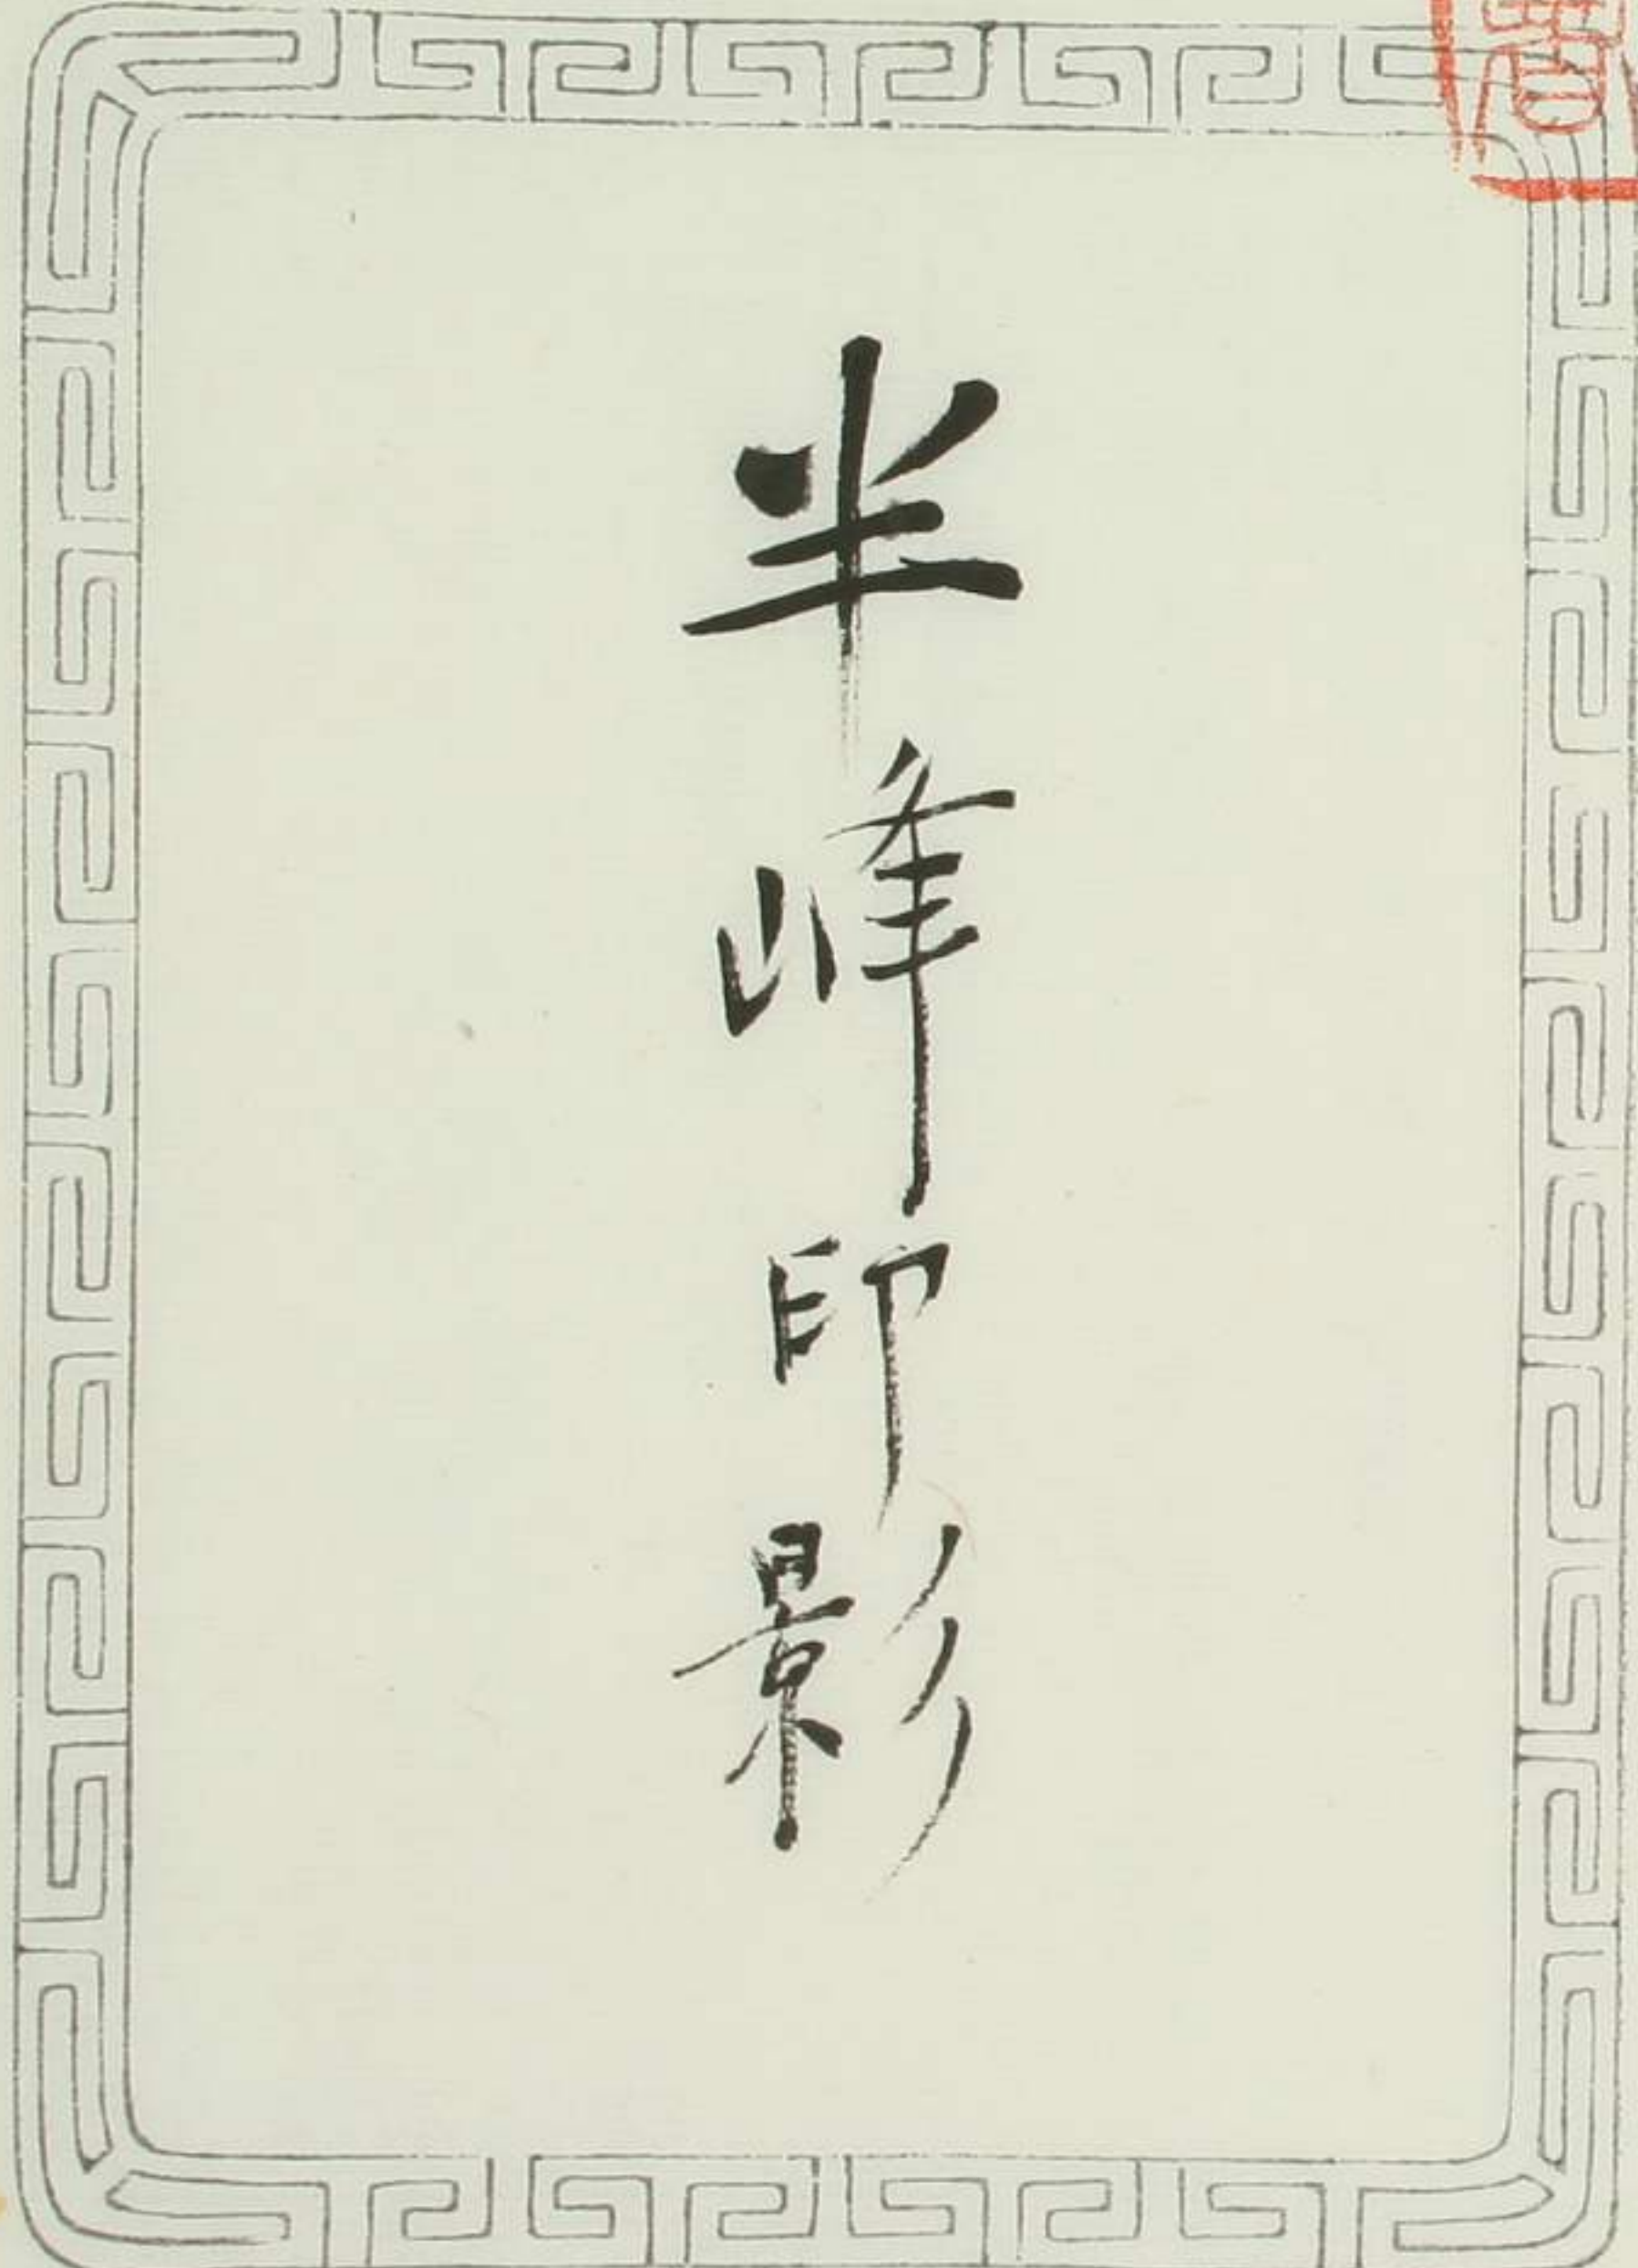 半峰印影